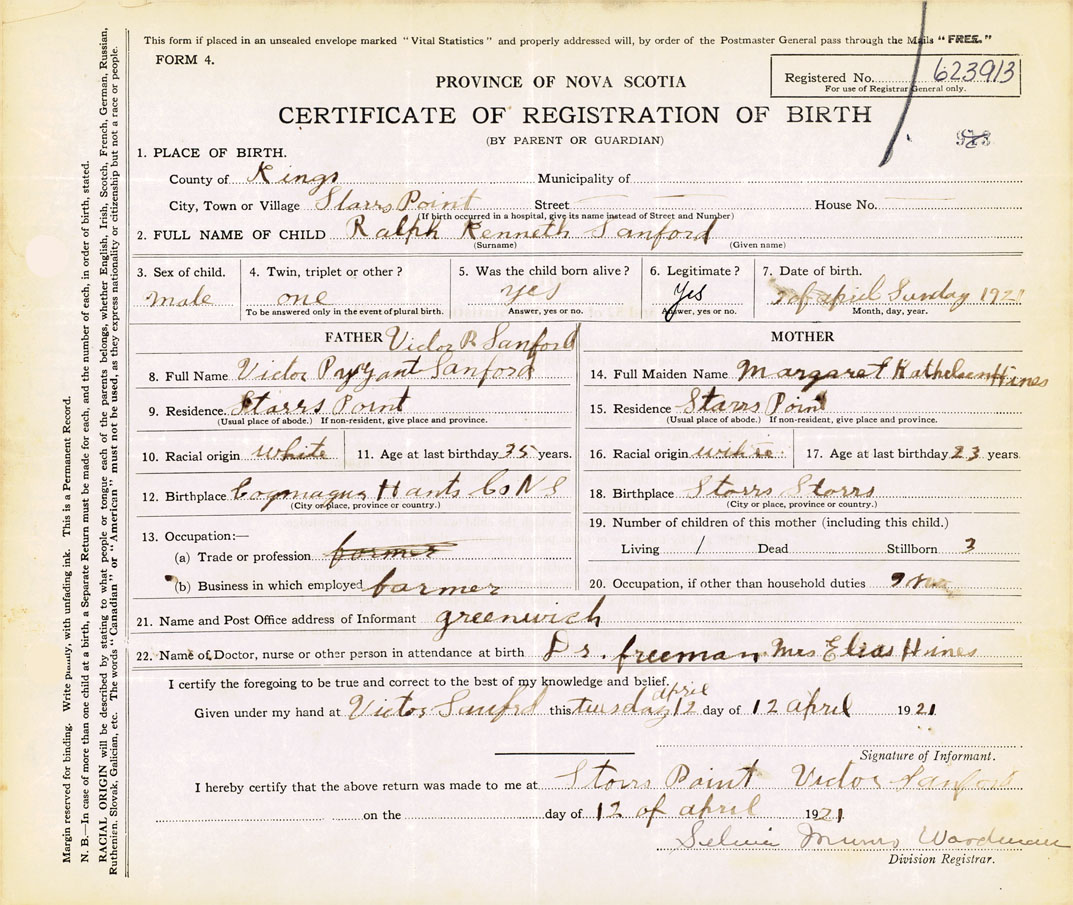 This form if placed in an unsealed envelope marked "Vital Statistics" and properly addressed will, by order of the Postmaster General pass through the Mails "FREE."
FORM 4.
Registered No. 623913
For use of Registrar General only.
PROVINCE OF NOVA SCOTIA
CERTIFICATE OF REGISTRATION OF BIRTH
(BY PARENT OR GUARDIAN)
1. PLACE OF BIRTH.
County of Kings Municipality of
City, Town or Village Starrs Point Street House No.
(If birth occurred in a hospital, give its name instead of Street and Number)
2. FULL NAME OF CHILD Ralph Kenneth Sanford
(Surname) (Given name)
3. Sex of child. 4. Twin, triplet or other? 5. Was the child born alive? 6. Legitimate? 7. Date of birth.
male one yes yes of april Sunday 192
To be answered only in the event of plural birth. Answer, yes or no. Answer, yes or no. Month, day, year.
FATHER Victor R Sanford
8. Full Name Victor Sanford
9. Residence. Starrs Point
(Usual place of abode.) If non-resident, give place and province.
10. Racial origin white 11. Age at last birthday 35 years.
12. Birthplace Hants Co N S
(City or place, province or country.)
13. Occupation:—
(a) Trade or profession farmer
(b) Business in which employed farmer
MOTHER
14. Full Maiden Name Margaret Kathleen Hines
15. Residence Starrs Point
(Usual place of abode.) If non-resident, give place and province.
16. Racial origin white 17. Age at last birthday 23 years.
18. Birthplace Starrs Starrs
(City or place, province or country.)
19. Number of children of this mother (including this child.)
Living 1 Dead Stillborn 3
20. Occupation, if other than household duties
21. Name and Post Office address of Informant greenwich
22. Name of Doctor, nurse or other person in attendance at birth Dr. freeman Mrs Hines
I certify the foregoing to be true and correct to the best of my knowledge and belief.
april
Given under my hand at Victor Sanford this tuesday 12 day of 12 april 1921
Signature of Informant.
I hereby certify that the above return was made to me at Starrs Point Victor Sanford
on the day of 12 of april 1921
Munro Woodman
Division Registrar.
Margin reserved for binding. Write plainly, with unfading ink. This is a Permanent Record.
N. B.—In case of more than one child at a birth, a Separate Return must be made for each, and the number of each, in order of birth, stated.
RACIAL ORIGIN will be described by stating to what people or tongue each of the parents belongs, whether English, Irish, Scotch, French, German, Russian,
Ruthenien, Slovak, Galician, etc. The words "Canadian" or "American" must not be used, as they express nationality or citizenship but not a race or people.